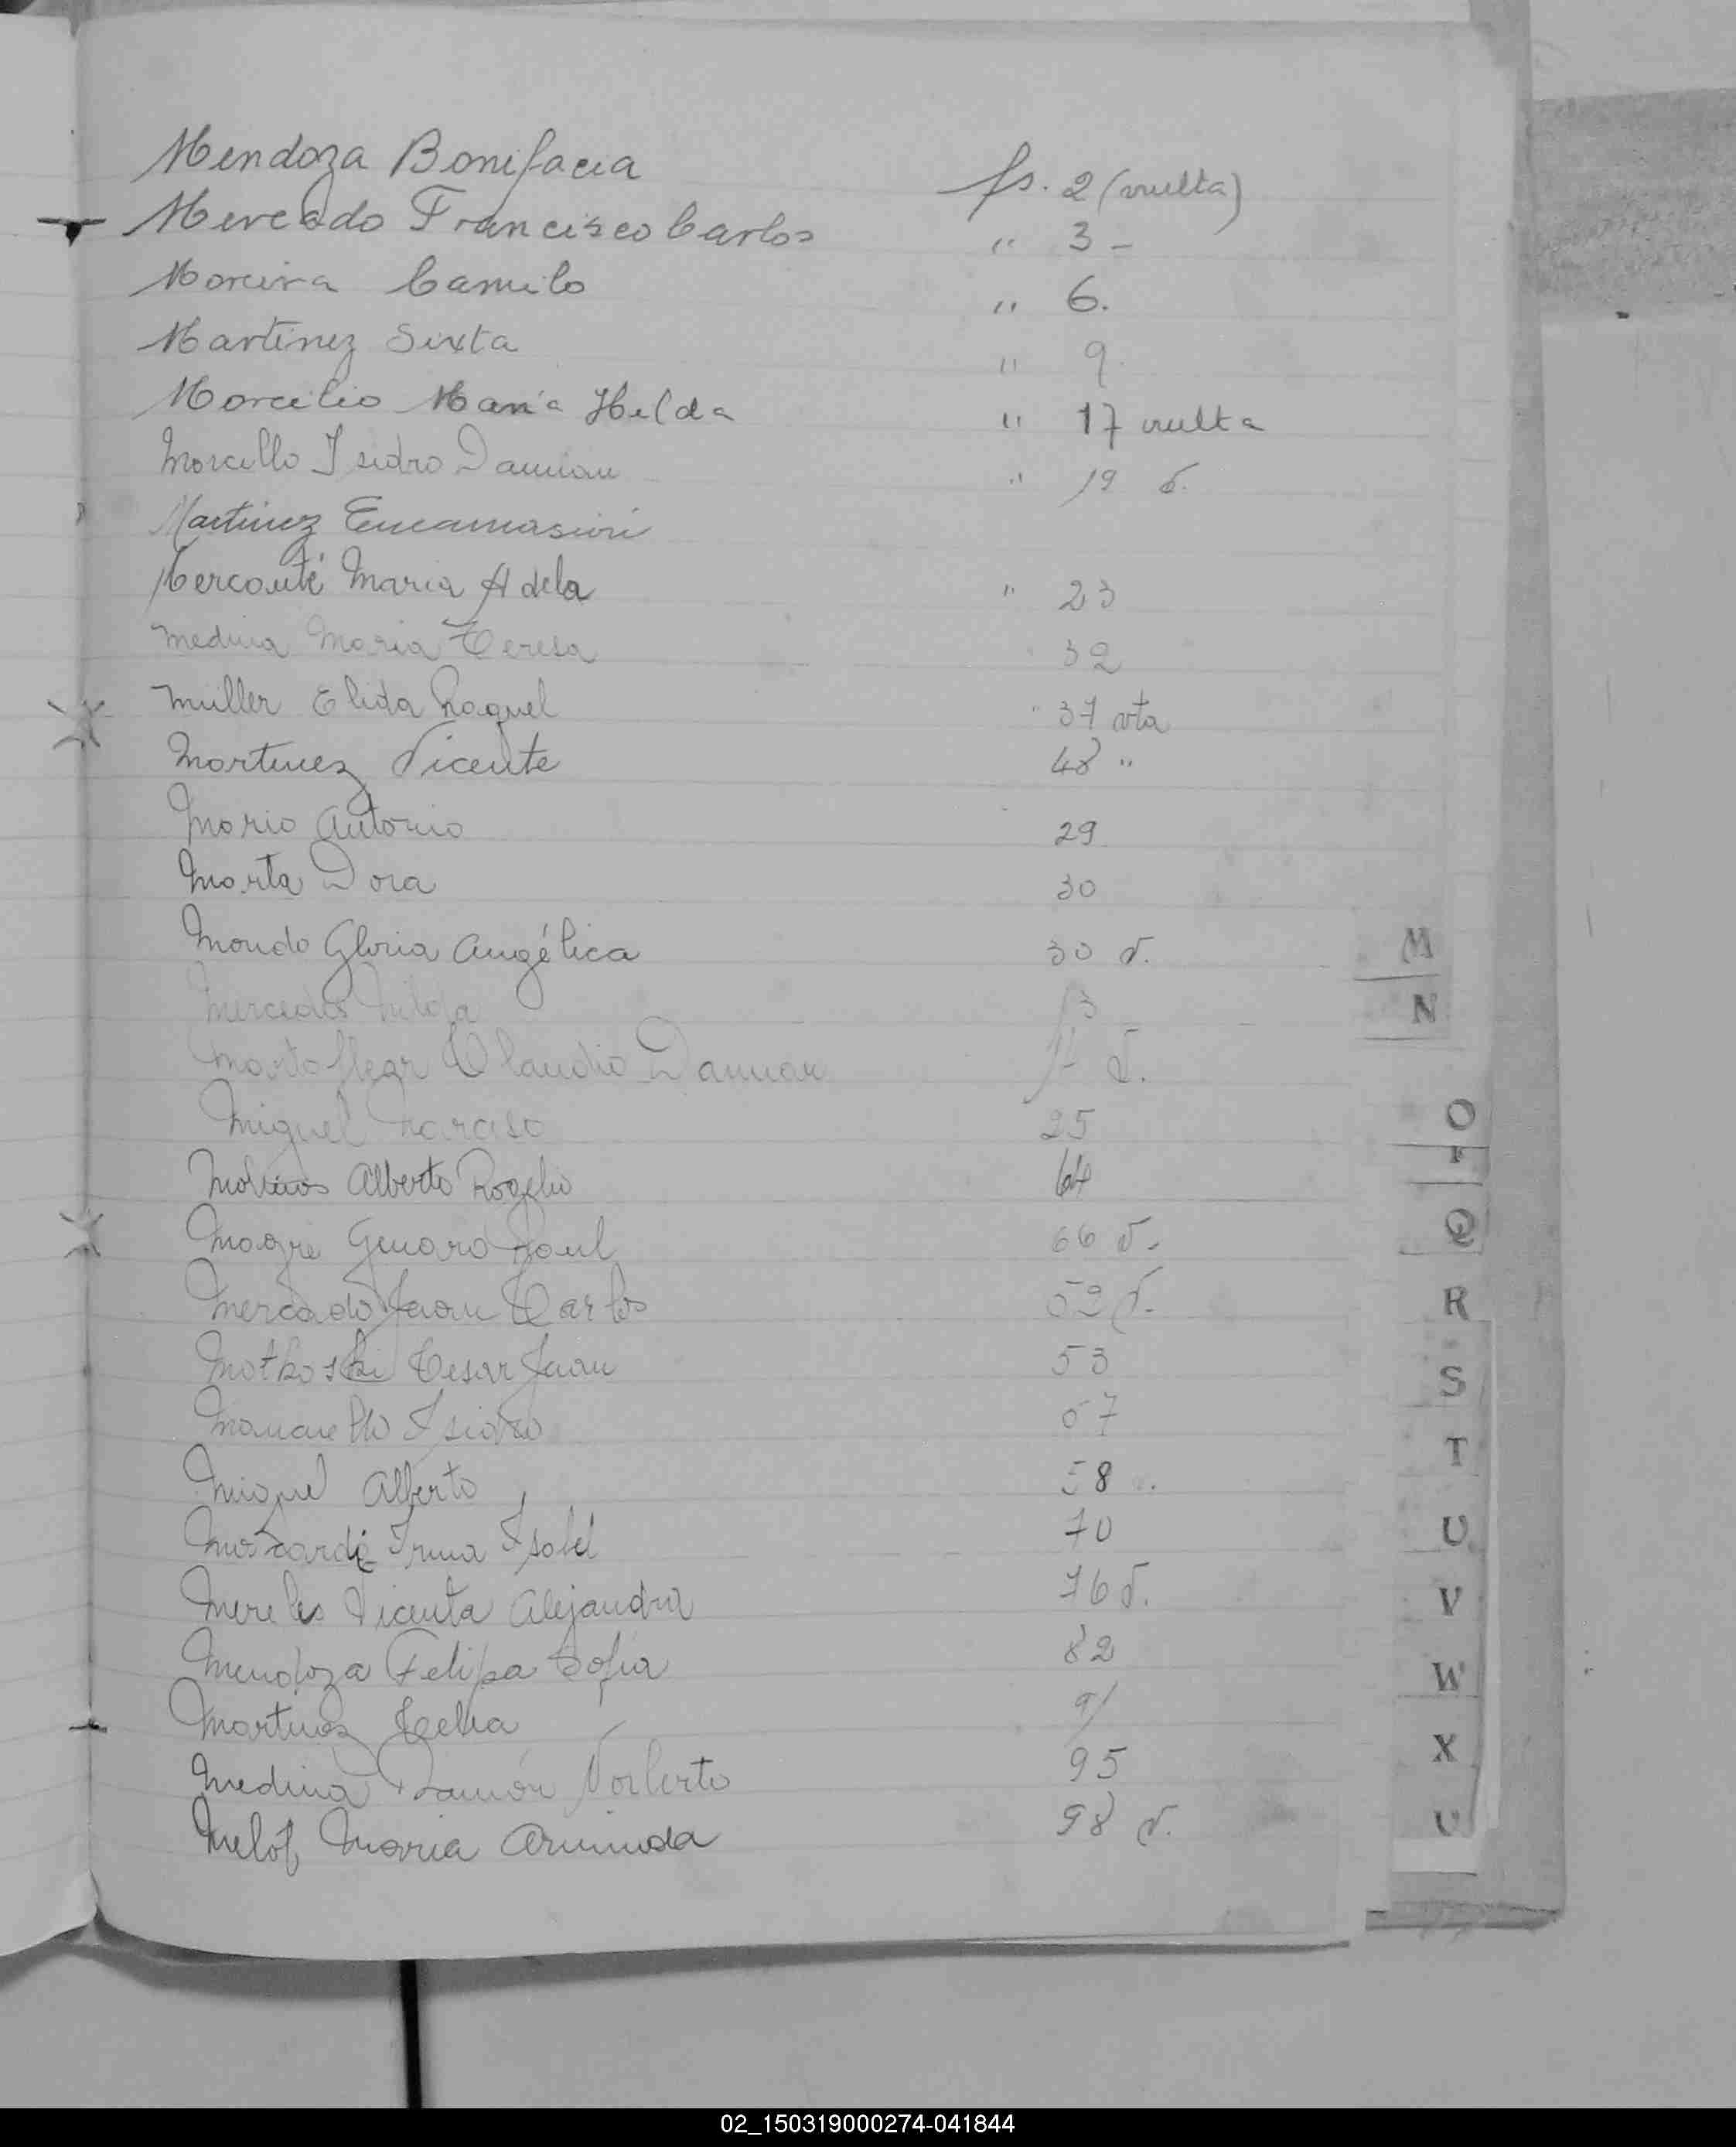 Mendoza Bonifacia fs. 2 (vuelta)
Mercado Francisco Carlos " 3 -
Moreira Camilo " 6.
Martinez Sixta " 9.
Morcilio Maria Hilda " 17 vuelta
Morcillo Isidro Damian " 19 v.
Martinez Encarnasión
Mercanté Maria Adela " 23
Medina Maria Teresa 32
Muller Elida Raquel " 37 vta
Martinez Vicente 48 "
Mario Antonio 29
Marta Dora 30
Mondo Gloria Angélica 30 v.
Mercedes Nilda
Claudio Damian v.
Miguel 25
Alberto Rogelio 64
Genaro Raul 66 v.
Mercado Juan Carlos 52 v.
Matkoski Cesar Juan 53
Isidro 57
Miguel Alberto 58
Irma Isabel 70
Mereles Vicenta Alejandra 76 v.
Mendoza Felipa Sofia 82
Martinez Celia 91
Medina Ramón Norberto 95
Maria Arminda 98 v.
M
N
O
P
Q
R
S
T
U
V
W
X
02_150319000274-041844